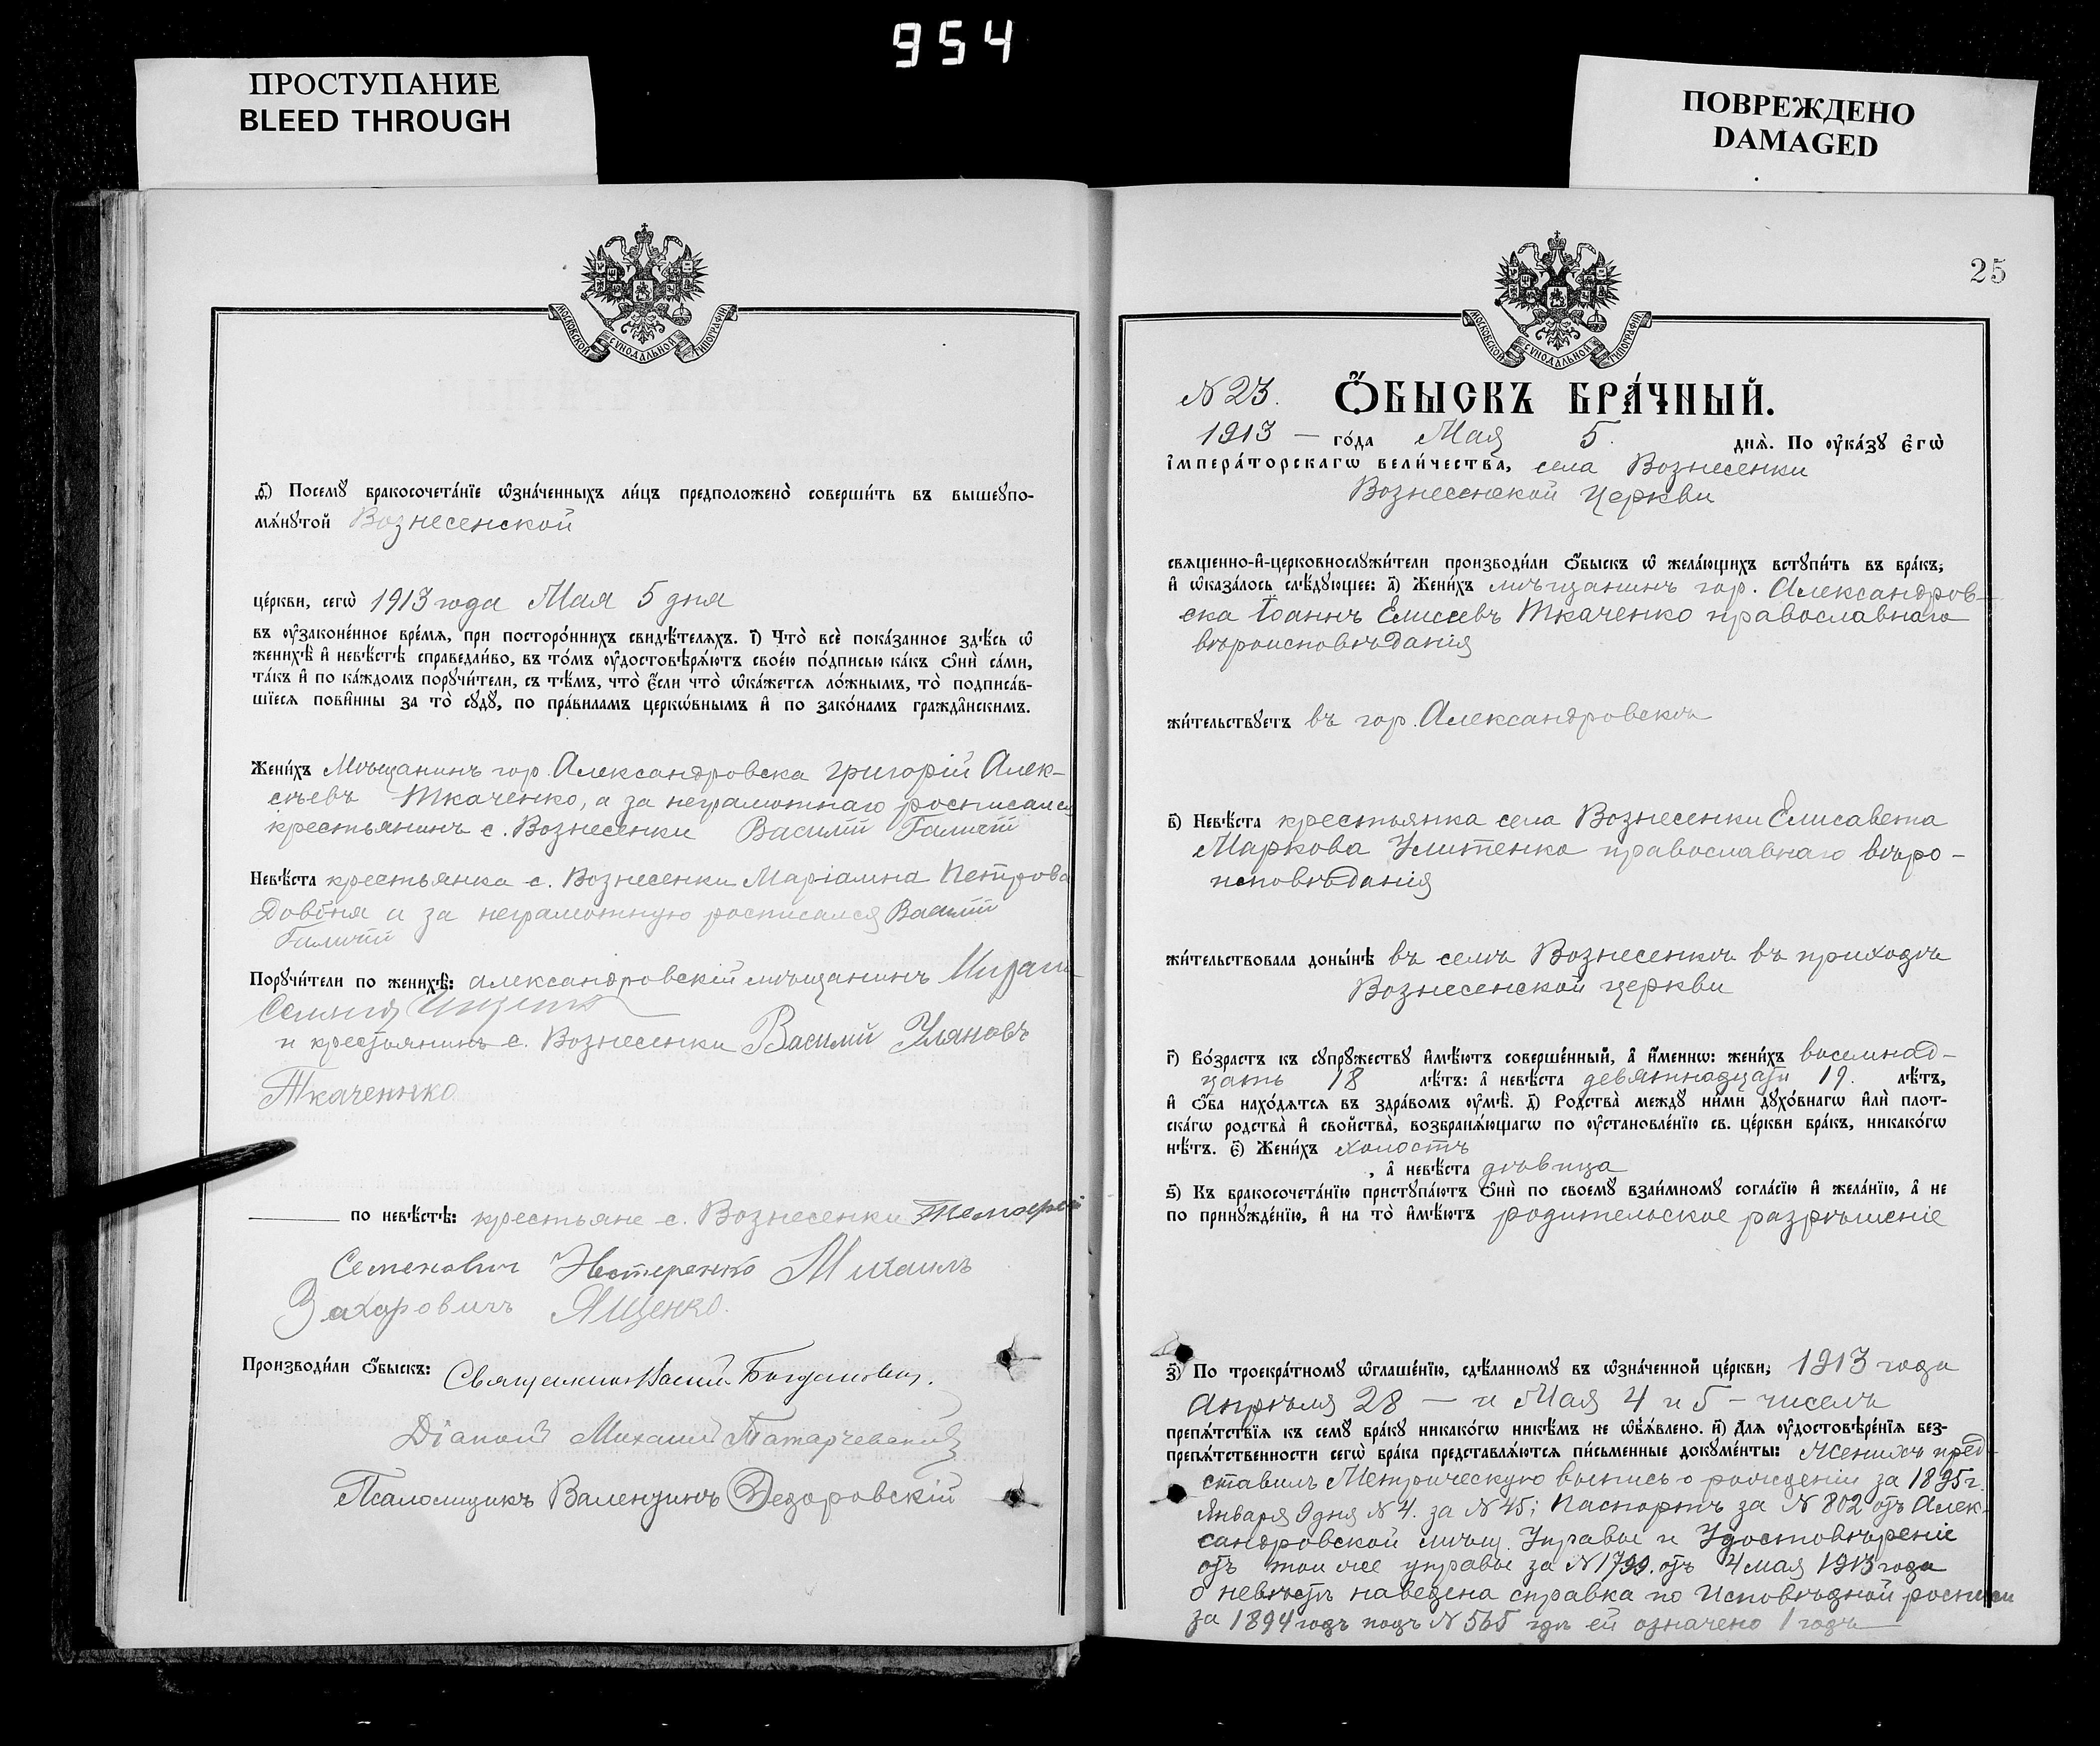 954
ПРОСТУПАНИЕ
BLEED THROUGH
ПОВРЕЖДЕНО
DAMAGED
МОСКОВСКОЙ СѴНОДАЛЬНОЙ ТИПОГРАФІИ
ѳ҃) Посемꙋ бракосочета́нїе ѡ҆зна́ченныхъ ли́цъ предположено̀ соверши́ть въ вышеꙋпо-
мѧ́нꙋтой Вознесенской
це́ркви, сегѡ̀ 1913 года Мая 5 дня
въ ᲂу҆законе́нное вре́мѧ, при посторо́ннихъ свидѣ́телѧхъ. і҃) Что̀ всѐ пока́занное здѣ́сь ѡ҆
женихѣ̀ и҆ невѣ́стѣ справедли́во, въ то́мъ ᲂу҆достовѣрѧ́ютъ свое́ю по́дписью ка́къ ѻ҆нѝ са́ми,
та́къ и҆ по ка́ждомъ порꙋчи́тели, съ тѣ́мъ, что̀ є҆́сли что̀ ѡ҆ка́жетсѧ ло́жнымъ, то̀ подписа́в-
шїесѧ пови́нны за то̀ сꙋдꙋ̀, по пра́виламъ церко́внымъ и҆ по зако́намъ гражда́нскимъ.
Жени́хъ Мѣщанинъ гор. Александровска Григорій Алек-
сѣевъ Ткаченко, а за неграмотнаго росписался
крестьянинъ с. Вознесенки Василій Галичій
Невѣ́ста крестьянка с. Вознесенки Маріамна Петрова
Довбня а за неграмотную росписался Василій
Галичій
Порꙋчи́тели по женихѣ̀: александровскій мѣщанинъ
и крестьянинъ с. Вознесенки Василій Уляновъ
Ткаченнко
по невѣ́стѣ: крестьяне с. Вознесенки
Семенович Нестеренко Михаилъ
Захаровичъ Ященко.
Производи́ли ѻ҆́быскъ: Священникъ Василій Богданович.
Діаконъ Михаил Татарчевскій
Псаломщикъ Валентинъ Федоровскій
25
МОСКОВСКОЙ СѴНОДАЛЬНОЙ ТИПОГРАФІИ
N 23. Ѻ҆́БЫСКЪ БРА́ЧНЫЙ.
1913 — го́да Мая 5. днѧ̀. По ᲂу҆ка́зꙋ Є҆гѡ̀
І҆мпера́торскагѡ вели́чества, села Вознесенки
Вознесенской Церкви
свѧще́нно-и҆-церковнослꙋжи́тели производи́ли ѻ҆́быскъ ѡ҆ жела́ющихъ встꙋпи́ть въ бра́къ,
и҆ ѡ҆каза́лось слѣ́дꙋющее: а҃) Жени́хъ мѣщанинъ гор. Александров-
ска Іоаннъ Елисеевъ Ткаченко православнаго
вѣроисповѣданія
жи́тельствꙋетъ въ гор. Александровскѣ
в҃) Невѣ́ста крестьянка села Вознесенки Елисавета
Маркова Улитенко православнаго вѣро-
исповѣданія
жи́тельствовала доны́нѣ въ селѣ Вознесенкѣ въ приходѣ
Вознесенской церкви
г҃) Во́зрастъ къ сꙋпрꙋ́жествꙋ и҆мѣ́ютъ соверше́нный, а҆ и҆́меннѡ: жени́хъ восемнад-
цать 18 лѣ́тъ: а҆ невѣ́ста девятнадцати 19. лѣ́тъ,
и҆ ѻ҆́ба нахо́дѧтсѧ въ здра́вомъ ᲂу҆мѣ̀. д҃) Родства̀ междꙋ ни́ми дꙋхо́внагѡ и҆лѝ плот-
ска́гѡ родства̀ и҆ сво́йства, возбранѧ́ющагѡ по ᲂу҆становле́нїю св. це́ркви бра́къ, никако́гѡ
нѣ́тъ. є҃) Жени́хъ холостъ
, а҆ невѣ́ста дѣвица
ѕ҃) Къ бракосочета́нїю пристꙋпа́ютъ ѻ҆нѝ по своемꙋ̀ взаи́мномꙋ согла́сїю и҆ жела́нїю, а҆ не
по принꙋжде́нїю, и҆ на то̀ и҆мѣ́ютъ родительское разрѣшеніе
з҃) По троекра́тномꙋ ѡ҆глаше́нїю, сдѣ́ланномꙋ въ ѡ҆зна́ченной це́ркви, 1913 года
Апрѣля 28 — и Мая 4 и 5 — чиселъ
препѧ́тствїѧ къ семꙋ̀ бра́кꙋ никако́гѡ никѣ́мъ не ѡ҆б̾ѧ́влено. и҃) Длѧ̀ ᲂу҆достовѣре́нїѧ без-
препѧ́тственности сегѡ̀ бра́ка представлѧ́ютсѧ пи́сьменные докꙋме́нты: Женихъ пред-
ставилъ Метрическую выпись о рожденіи за 1895 г.
Января 9 дня N 4. за N 45; Паспортъ за N 802 отъ Алек-
сандровской мѣщ. Управы и Удостовѣреніе
отъ той же управы за N 1799. отъ 4 мая 1913 года
о невѣстѣ наведена справка по Исповѣдной росписи
за 1894 годъ подъ N 565 гдѣ ей означено 1 годъ